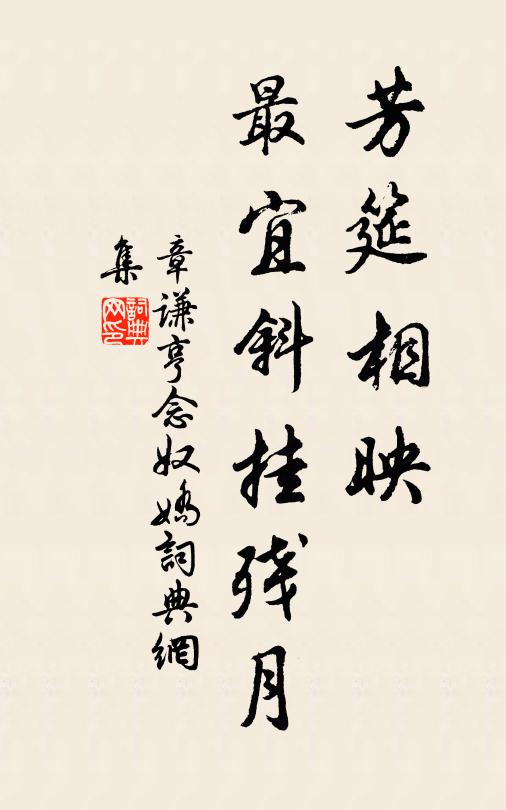 芳筵相映
最宜斜挂残月
章谦亨念奴嬌詞典網
集
詞典
网印